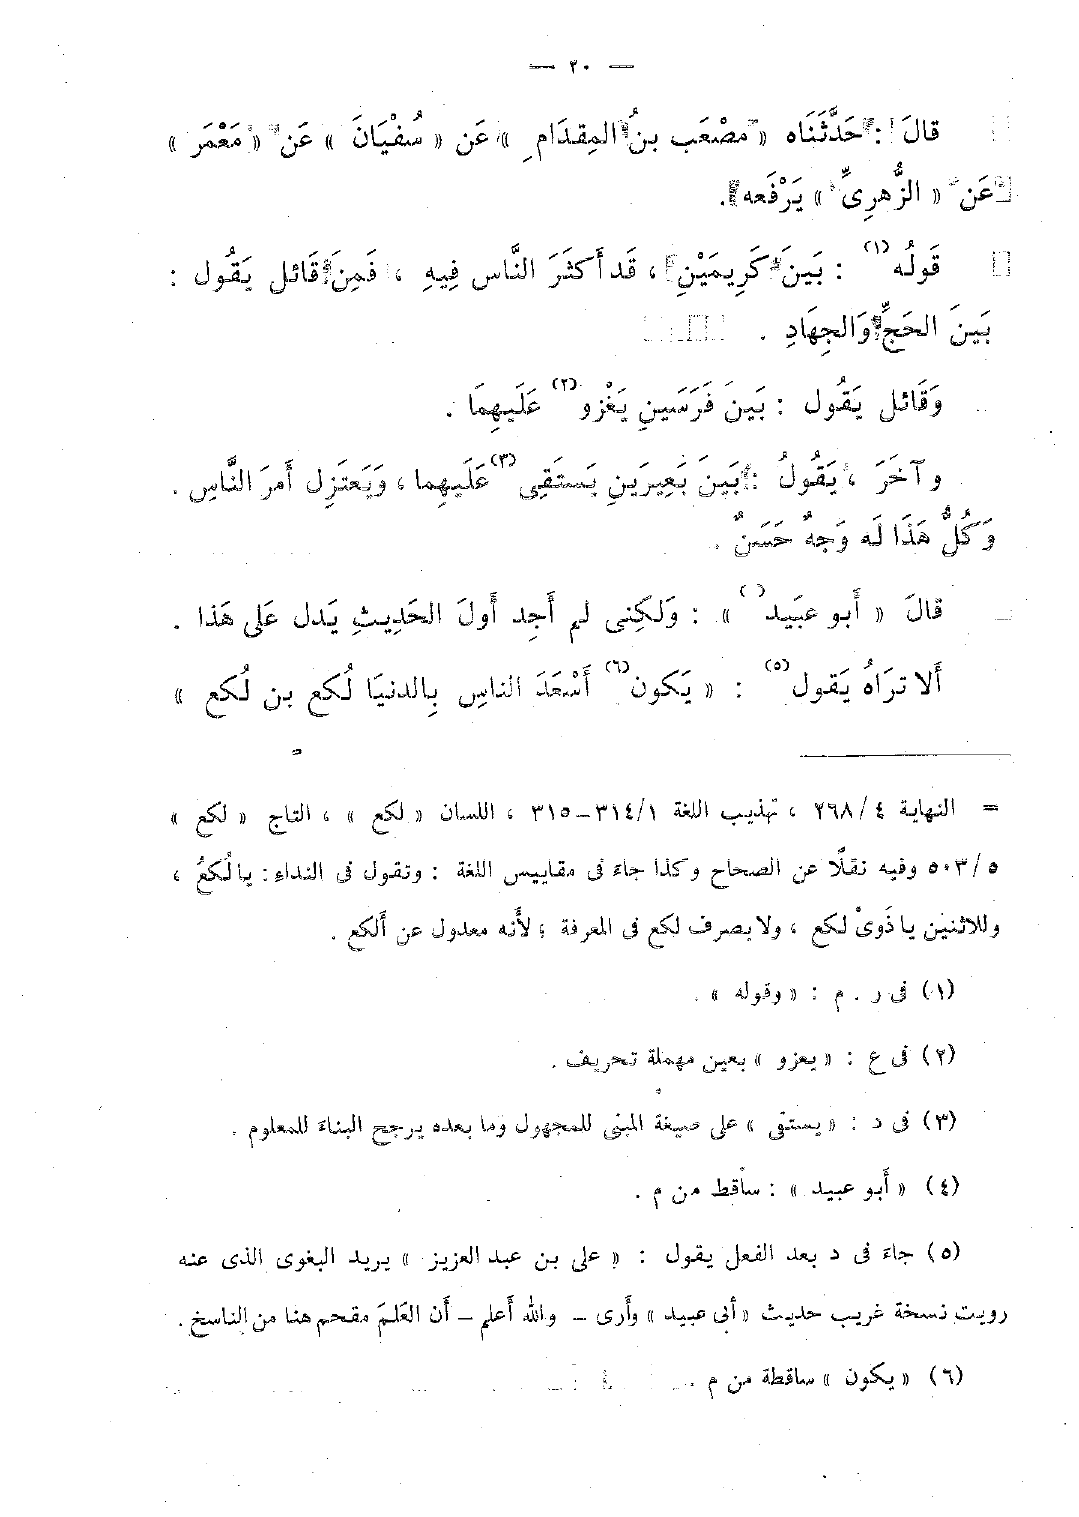 — ٢٠ —
قالَ : حَدَّثَنَاه « مصْعَب بنُ المِقدَامِ » عَن « سُفْيَانَ » عَن « مَعْمَر »
عَن « الزُّهرِىِّ » يَرْفَعه .
قَولُه (١) : بَينَ كَرِيمَيْنِ ، قَد أكثَرَ النَّاس فِيهِ ، فَمِنَ قَائل يَقُول :
بَينَ الحَجِّ وَالجِهَادِ .
وَقَائل يَقُول : بَينَ فَرَسَينِ يَغْزو (٢) عَلَيهِمَا .
وآخَرَ ، يَقُولُ : بَينَ بَعِيرَينِ يَستَقِى (٣) عَلَيهِما ، وَيَعتَزِل أَمرَ النَّاسِ .
وَكُلُّ هَذَا لَه وَجهٌ حَسَنٌ .
قالَ « أَبو عبَيد ( ) » : وَلَكِنِى لم أَجِد أَولَ الحَدِيثِ يَدل عَلى هَذا .
أَلا تَرَاهُ يَقول (٥) : « يَكون (٦) أَسْعَدَ الناسِ بِالدنيَا لُكع بن لُكع »
= النهاية ٤ /٢٦٨ ، تهذيب اللغة ١ /٣١٤–٣١٥ ، اللسان « لكع » ، التاج « لكع »
٥ /٥٠٣ وفيه نقلًا عن الصحاح وكذا جاءَ فى مقاييس اللغة : وتقول فى النداءِ : يا لُكَعُ ،
وللاثنين يا ذَوىْ لكع ، ولا يصرف لكع فى المعرفة ؛ لأَنه معدول عن أَلكع .
(١) فى ر . م : « وقوله » .
(٢) فى ع : « يعزو » بعين مهملة تحريف .
(٣) فى د : « يستقى » على صيغة المبنى للمجهول وما بعده يرجح البناءَ للمعلوم .
(٤) « أَبو عبيد » : ساقط من م .
(٥) جاءَ فى د بعد الفعل يقول : « على بن عبد العزيز » يريد البغوى الذى عنه
رويت نسخة غريب حديث « أبى عبيد » وأَرى – والله أَعلم – أَن العَلمَ مقحم هنا من الناسخ .
(٦) « يكون » ساقطة من م .